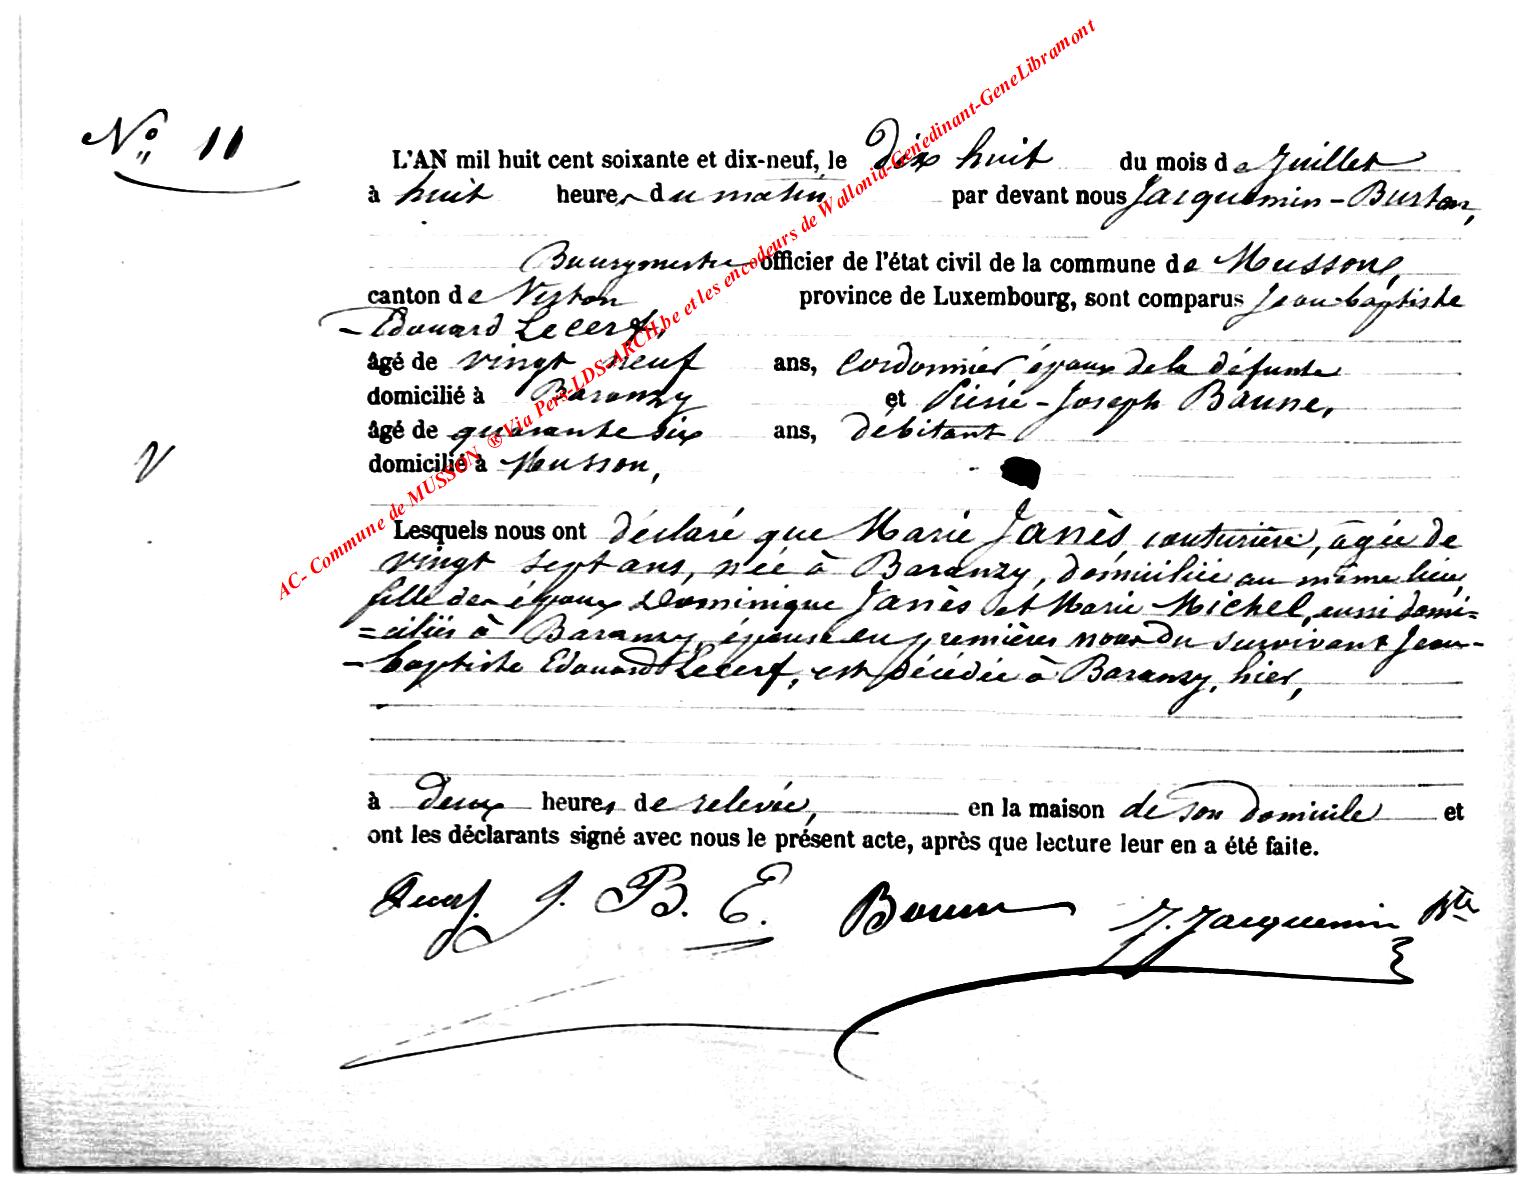 N° 11
L'AN mil huit cent soixante et dix-neuf, le Dix huit du mois de Juillet
à huit heures du matin par devant nous Jacquemin-Burton,
Bourgmestre officier de l'état civil de la commune de Musson,
canton de Virton province de Luxembourg, sont comparus Jean-baptiste
Edouard Lecerf,
âgé de vingt neuf ans, cordonnier époux de la défunte
domicilié à Baranzy et Pierre-Joseph Baune,
âgé de quarante six ans, débitant
domicilié à Musson,
Lesquels nous ont déclaré que Marie Janès couturière, âgée de
vingt sept ans, née à Baranzy, domiciliée au même lieu,
fille des époux Dominique Janès et Marie Michel, aussi domi=
=ciliés à Baranzy, épouse en premières noces du survivant Jean-
-baptiste Edouard Lecerf, est décédée à Baranzy, hier,
à deux heures de relevée, en la maison de son domicile et
ont les déclarants signé avec nous le présent acte, après que lecture leur en a été faite.
Lecerf. J. B. E. Baune J. Jacquemin
AC- Commune de MUSSON ® Via Pers-LDS-ARCH.be et les encodeurs de Wallonia-Genedinant-GeneLibramont